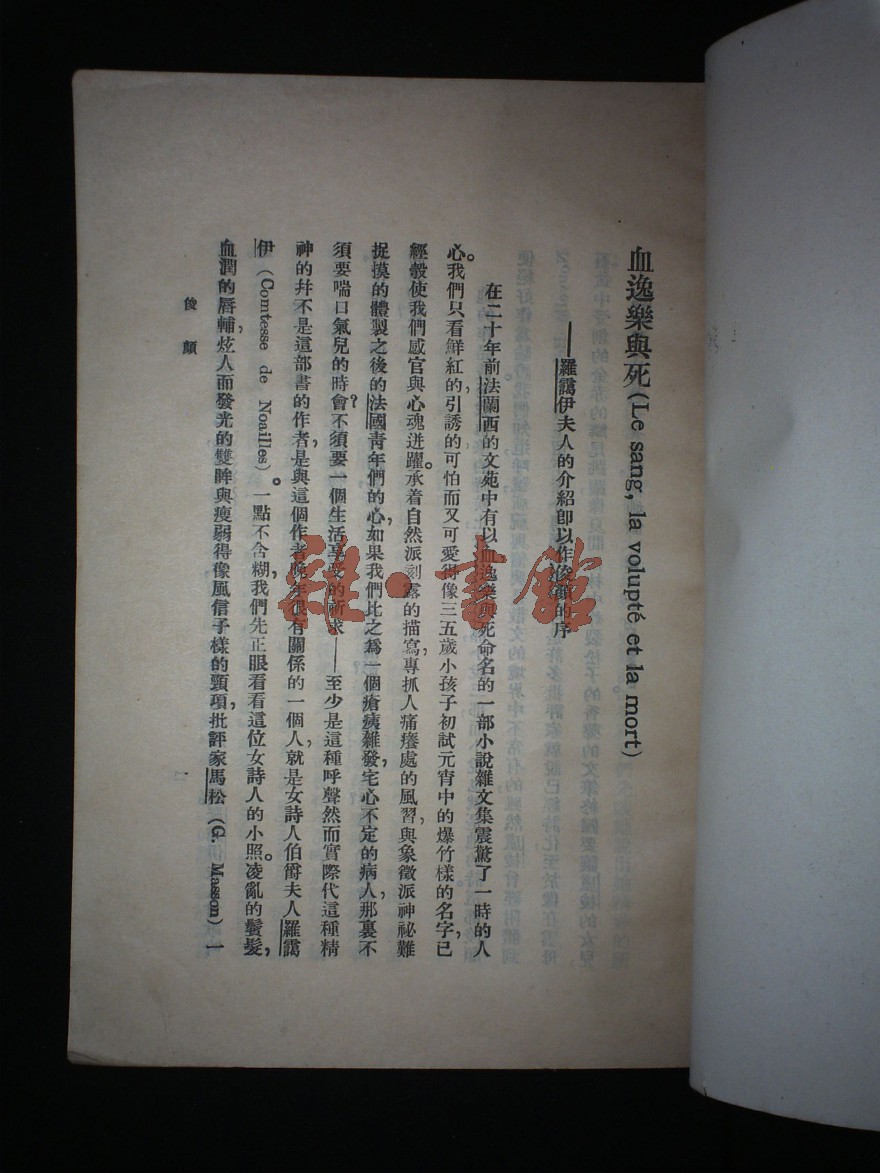 血逸樂與死(Le sang, la volupté et la mort)
——羅靄伊夫人的介紹卽以作俊顏的序
在二十年前法蘭西的文苑中有以血逸樂與死命名的一部小說雜文集震驚了一時的人
心。我們只看鮮紅的,引誘的,可怕而又可愛得像三五歲小孩子初試元宵中的爆竹樣的名字,已
經彀使我們感官與心魂迸躍。承着自然派刻露的描寫,專抓人痛癢處的風習,與象徵派神祕難
捉摸的體製之後的法國青年們的心,如果我們比之爲一個瘡痍雜發,宅心不定的病人,那裏不
須要喘口氣兒的時會?不須要一個生活享受的祈求——至少是這種呼聲然而實際代這種精
神的幷不是這部書的作者,是與這個作者晚年很有關係的一個人,就是女詩人伯爵夫人羅靄
伊(Comtesse de Noailles)。一點不含糊,我們先正眼看看這位女詩人的小照。凌亂的鬢髮,
血潤的唇輔,炫人而發光的雙眸與瘦弱得像風信子樣的頸項,批評家馬松(G. Masson)一
俊顏
一
雜·書館